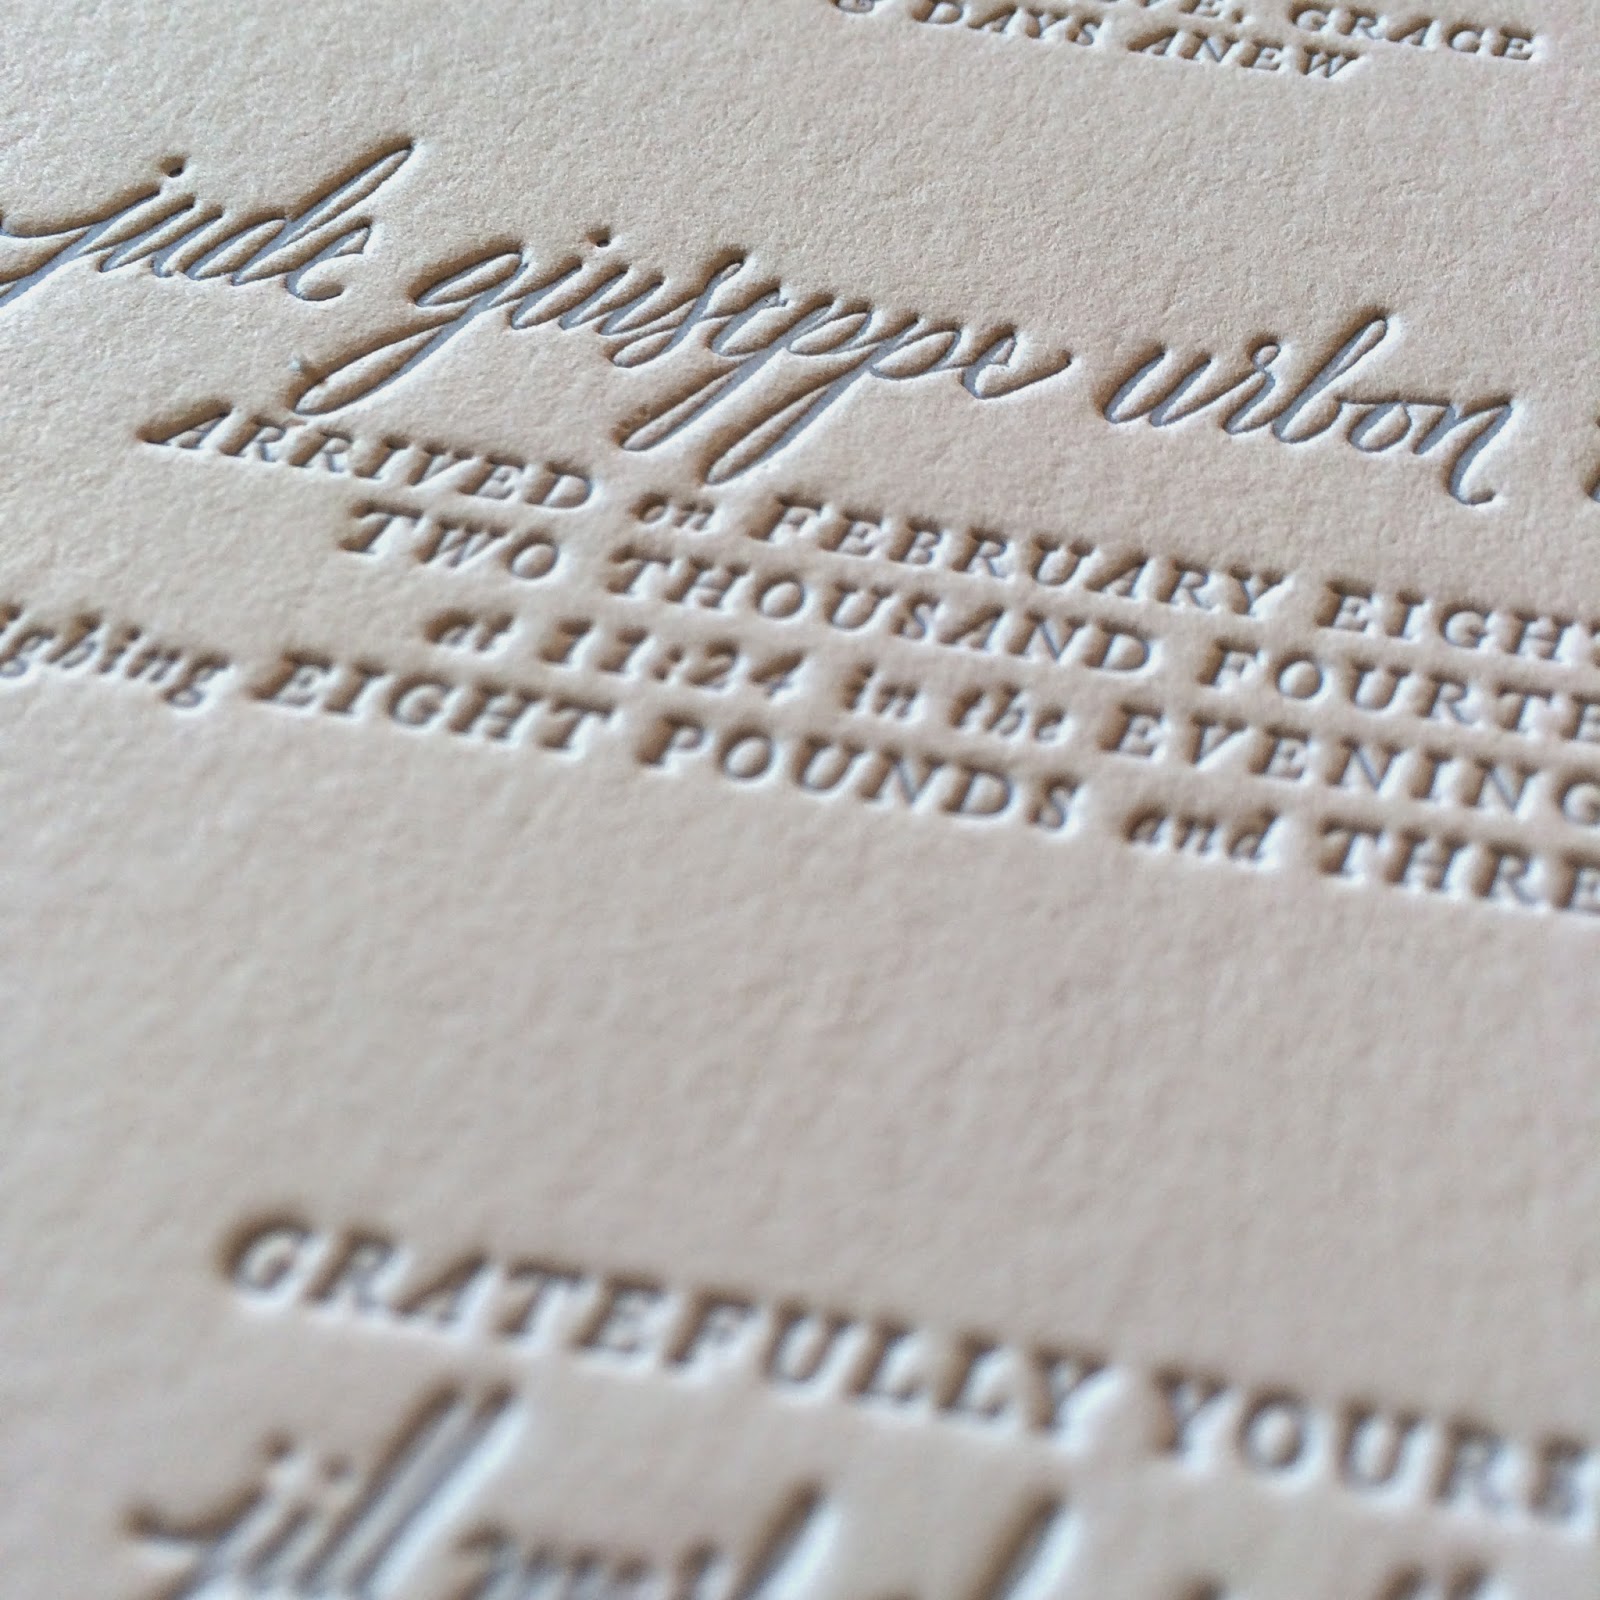 GRACE
& DAYS ANEW
jude giuseppe urbon
ARRIVED on FEBRUARY EIGHT
TWO THOUSAND FOURTE
at 11:24 in the EVENING
ighing EIGHT POUNDS and THRE
GRATEFULLY YOURS
jill